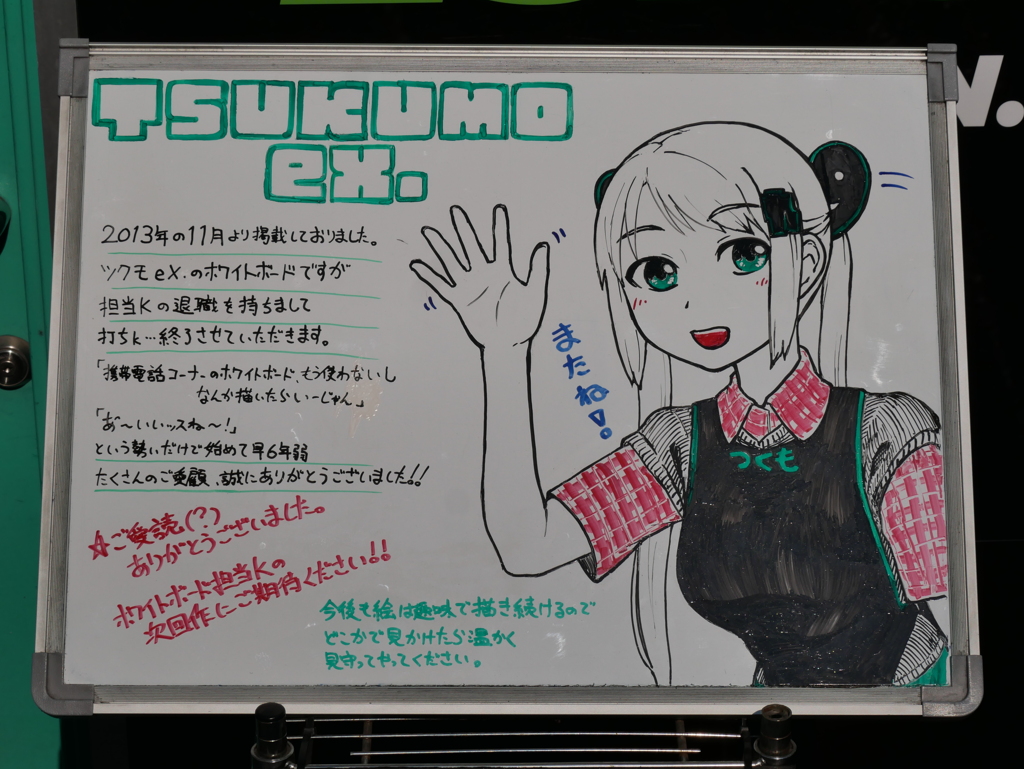 TSUKUMO
eX.
2013年の11月より掲載しておりました。
ツクモeX.のホワイトボードですが
担当Kの退職を持ちまして
打ちk…終了させていただきます。
「携帯電話コーナーのホワイトボード、もう使わないし
なんか描いたらいーじゃん」
「あ〜いいッスね〜!」
という勢いだけで始めて早6年弱
たくさんのご愛顧、誠にありがとうございました!!
☆ご愛読(?)
ありがとうございました。
ホワイトボード担当Kの
次回作にご期待ください!!
今後も絵は趣味で描き続けるので
どこかで見かけたら温かく
見守ってやってください。
またね!。
つくも
N.